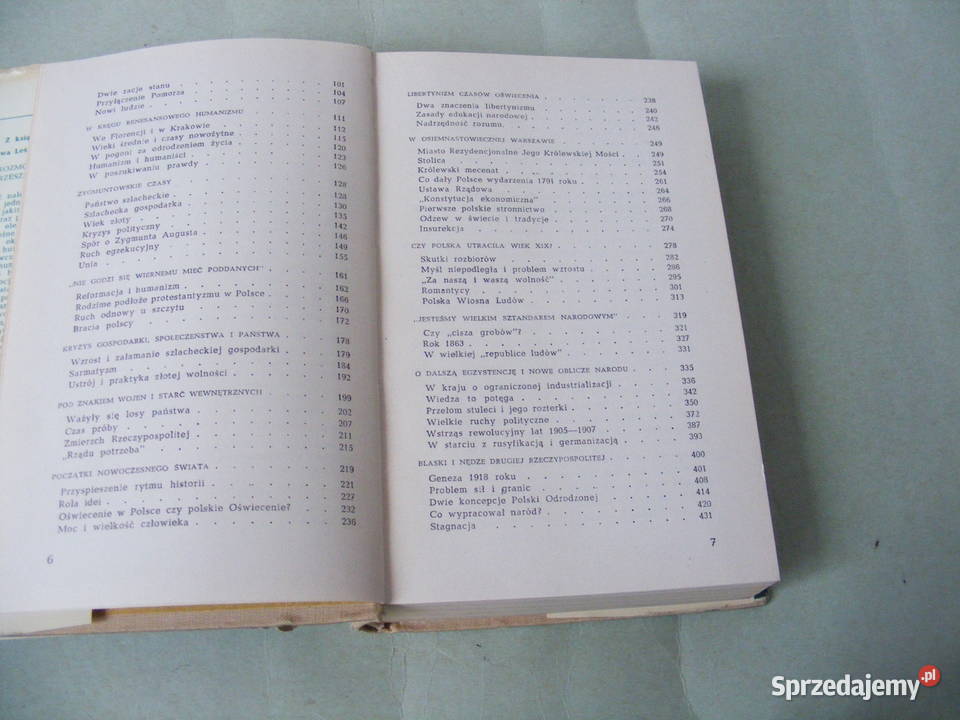 Z księ
wa Leś
ROZMO
RZESZ
nale
jedn
jakiż
raz i
ele
óżne
ok
hu
wcz
Dwie racje stanu 101
Przyłączenie Pomorza 104
Nowi ludzie 107
W KRĘGU RENESANSOWEGO HUMANIZMU 111
We Florencji i w Krakowie 112
Wieki średnie i czasy nowożytne 115
W pogoni za odrodzeniem życia 120
Humanizm i humaniści 123
W poszukiwaniu prawdy 126
ZYGMUNTOWSKIE CZASY 128
Państwo szlacheckie 128
Szlachecka gospodarka 130
Wiek złoty 135
Kryzys polityczny 142
Spór o Zygmunta Augusta 146
Ruch egzekucyjny 149
Unia 155
„NIE GODZI SIĘ WIERNEMU MIEĆ PODDANYCH" 161
Reformacja i humanizm 162
Rodzime podłoże protestantyzmu w Polsce 166
Ruch odnowy u szczytu 170
Bracia polscy 172
KRYZYS GOSPODARKI, SPOŁECZEŃSTWA I PAŃSTWA 178
Wzrost i załamanie szlacheckiej gospodarki 179
Sarmatyzm 184
Ustrój i praktyka złotej wolności 192
POD ZNAKIEM WOJEN I STARĆ WEWNĘTRZNYCH 199
Ważyły się losy państwa 202
Czas próby 207
Zmierzch Rzeczypospolitej 211
„Rządu potrzeba" 215
POCZĄTKI NOWOCZESNEGO ŚWIATA 219
Przyspieszenie rytmu historii 221
Rola idei 227
Oświecenie w Polsce czy polskie Oświecenie? 232
Moc i wielkość człowieka 236
6
LIBERTYNIZM CZASÓW OŚWIECENIA 238
Dwa znaczenia libertynizmu 240
Zasady edukacji narodowej 242
Nadrzędność rozumu 246
W OSIEMNASTOWIECZNEJ WARSZAWIE 249
Miasto Rezydencjonalne Jego Królewskiej Mości 249
Stolica 251
Królewski mecenat 254
Co dały Polsce wydarzenia 1791 roku 261
Ustawa Rządowa 264
„Konstytucja ekonomiczna" 266
Pierwsze polskie stronnictwo 268
Odzew w świecie i tradycje 270
Insurekcja 274
CZY POLSKA UTRACIŁA WIEK XIX? 278
Skutki rozbiorów 282
Myśl niepodległa i problem wzrostu 286
„Za naszą i waszą wolność" 295
Romantycy 301
Polska Wiosna Ludów 313
„JESTEŚMY WIELKIM SZTANDAREM NARODOWYM" 319
Czy „cisza grobów"? 321
Rok 1863 327
W wielkiej „republice ludów" 331
O DALSZĄ EGZYSTENCJĘ I NOWE OBLICZE NARODU 335
W kraju o ograniczonej industrializacji 336
Wiedza to potęga 342
Przełom stuleci i jego rozterki 350
Wielkie ruchy polityczne 372
Wstrząs rewolucyjny lat 1905—1907 387
W starciu z rusyfikacją i germanizacją 393
BLASKI I NĘDZE DRUGIEJ RZECZYPOSPOLITEJ 400
Geneza 1918 roku 401
Problem sił i granic 408
Dwie koncepcje Polski Odrodzonej 414
Co wypracował naród? 420
Stagnacja 431
7
Sprzedajemy.pl